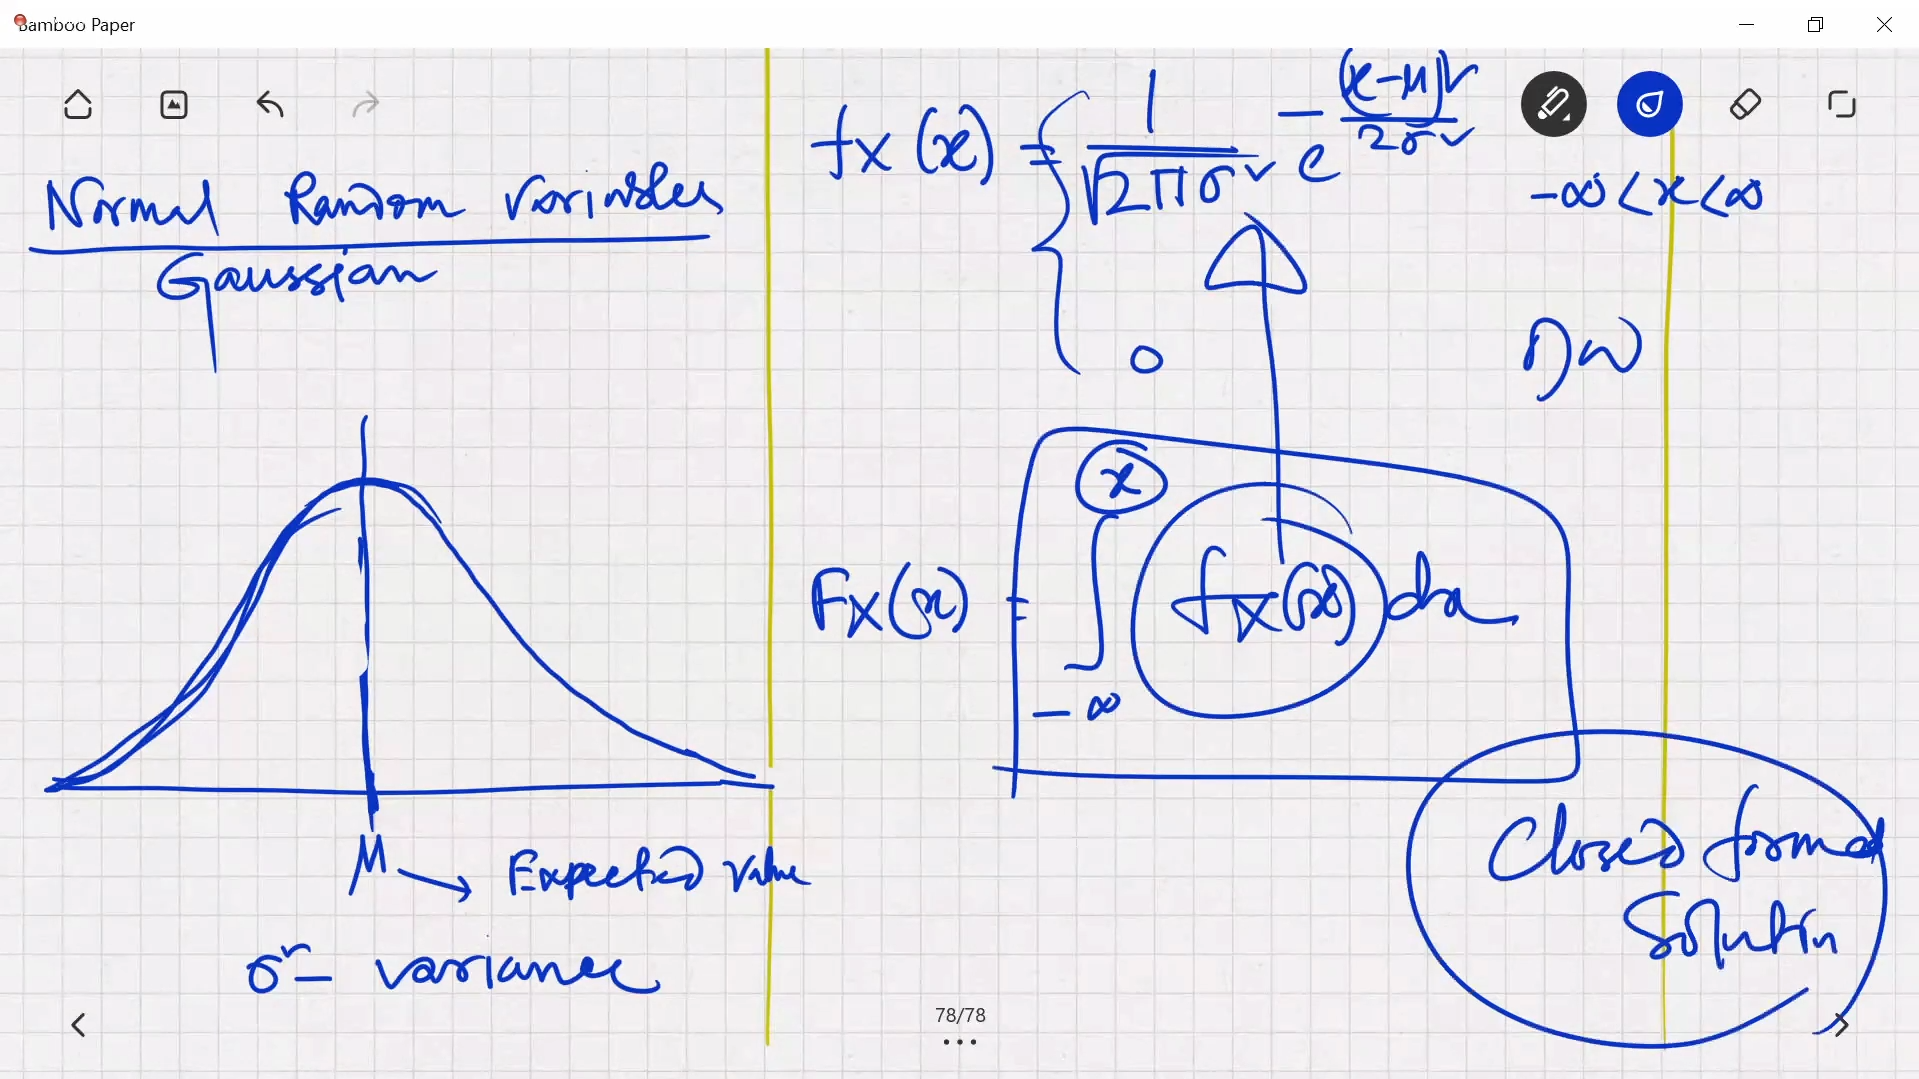 Bamboo Paper
Normal Random Variables
Gaussian
μ → Expected Value
σ² – variance
fX(x) = { 1/√2πσ² e^-(x-μ)²/2σ²
-∞ < x < ∞
0 OW
FX(x) = ∫ -∞ x fX(x) dx
Closed formed
Solution
78/78